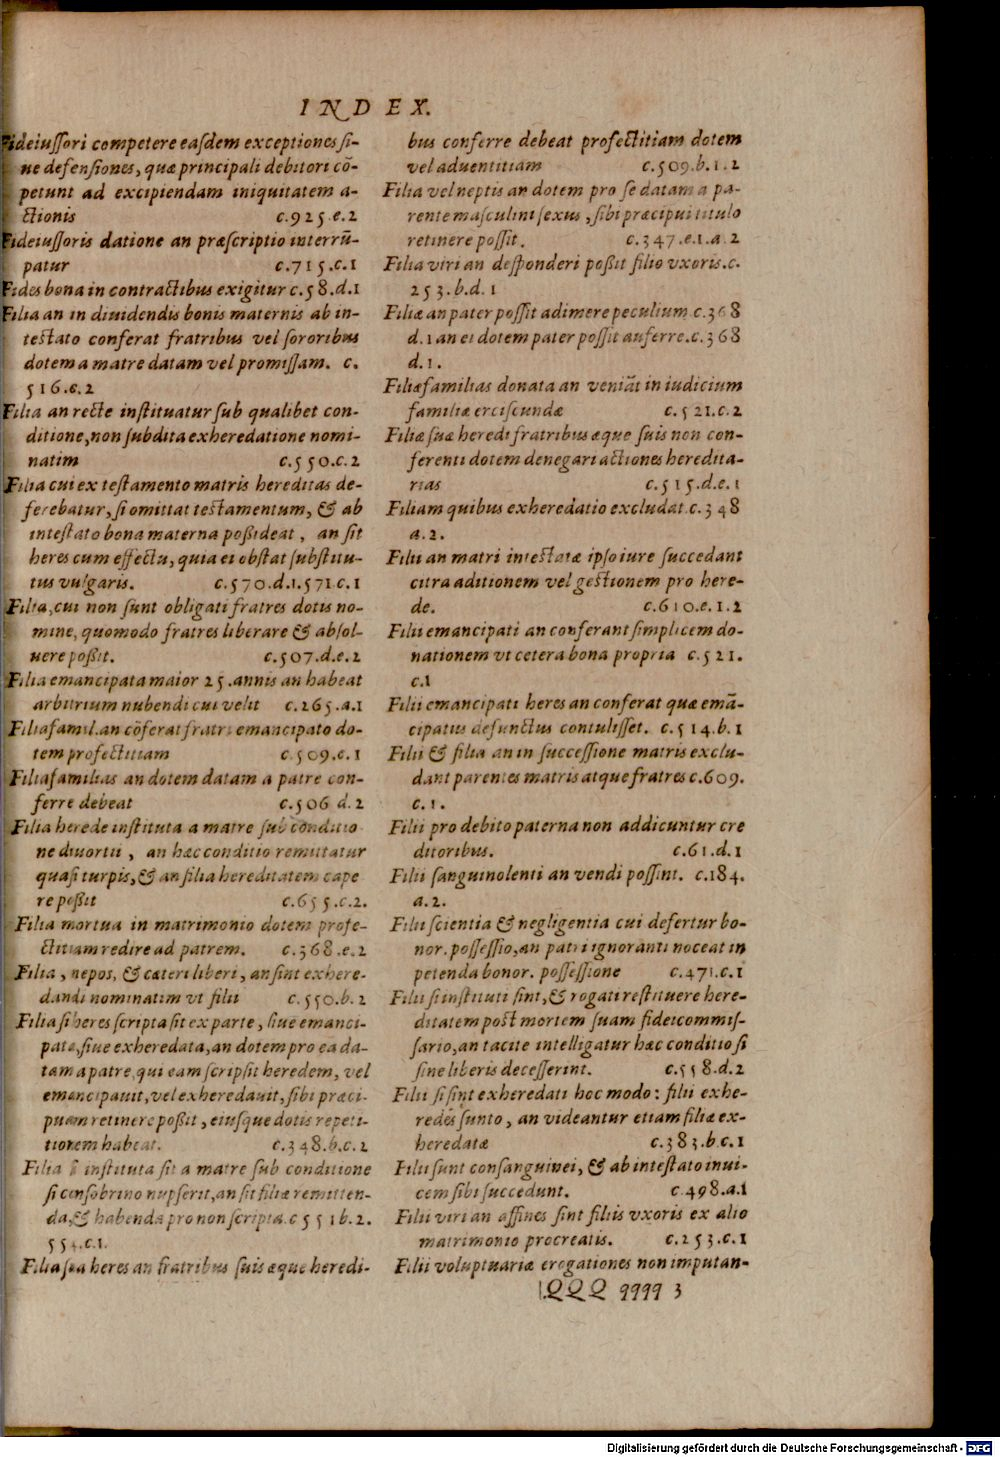 INDEX.
Fideiuſſori competere eaſdem exceptiones ſi-
ne defenſiones, quæ principali debitori cō-
petunt ad excipiendam iniquitatem a-
ctionis c.925.e.2
Fideiuſſoris datione an præſcriptio interrū-
patur c.715.c.1
Fides bona in contractibus exigitur c.58.d.1
Filia an in diuidendis bonis maternis ab in-
teſtato conferat fratribus vel ſororibus
dotem a matre datam vel promiſſam. c.
516.e.2
Filia an recte inſtituatur ſub qualibet con-
ditione, non ſubdita exheredatione nomi-
natim c.550.c.2
Filia cui ex teſtamento matris hereditas de-
ferebatur, ſi omittat teſtamentum, & ab
inteſtato bona materna poßideat, an ſit
heres cum effectu, quia ei obſtat ſubſtitu-
tus vulgaris. c.570.d.1.571.c.1
Filia, cui non ſunt obligati fratres dotis no-
mine, quomodo fratres liberare & abſol-
uere poßit. c.507.d.e.2
Filia emancipata maior 25.annis an habeat
arbitrium nubendi cui velit c.265.a.1
Filiafamil.an cōferat fratri emancipato do-
tem profectitiam c.509.e.1
Filiafamilias an dotem datam a patre con-
ferre debeat c.506 d.2
Filia herede inſtituta a matre ſub conditio
ne diuortii, an hæc conditio remittatur
quaſi turpis, & an filia hereditatem cape
re poßit c.655.c.2.
Filia mortua in matrimonio dotem profe-
ctitiam redire ad patrem. c.368.e.2
Filia, nepos, & cæteri liberi, an ſint exhere-
dandi nominatim vt filii c.550.b.2
Filia ſi heres ſcripta ſit ex parte, ſiue emanci-
pata, ſiue exheredata, an dotem pro ea da-
tam a patre, qui eam ſcripſit heredem, vel
emancipauit, vel exheredauit, ſibi præci-
puam retinere poßit, eiuſque dotis repeti-
tionem habeat. c.348.b.c.2
Filia ſi inſtituta ſit a matre ſub conditione
ſi conſobrino nupſerit, an ſit filiæ remitten-
da, & habenda pro non ſcripta.c 551b.2.
554.c.1.
Filia ſua heres an fratribus ſuis æque heredi-
bus conferre debeat profectitiam dotem
vel aduentitiam c.509.b.1.2
Filia vel neptis an dotem pro ſe datam a pa-
rente maſculini ſexus, ſibi præcipui titulo
retinere poſſit. c.347.e.1.a.2
Filia viri an deſponderi poßit filio vxoris.c.
253.b.d.1
Filiæ an pater poſſit adimere peculium c.368
d.1 an ei dotem pater poſſit auferre.c.368
d.1.
Filiæfamilias donata an veniāt in iudicium
familiæ erciſcundæ c.521.c.2
Filiæ ſuæ heredi fratribus æque ſuis non con-
ferenti dotem denegari actiones heredita-
rias c.515.d.e.1
Filiam quibus exheredatio excludat.c.348
a.2.
Filii an matri inteſtatæ ipſo iure ſuccedant
citra aditionem vel geſtionem pro here-
de. c.610.e.1.2
Filii emancipati an conferant ſimplicem do-
nationem vt cetera bona propria c.521.
c.1
Filii emancipati heres an conferat quæ emā-
cipatus defunctus contuliſſet. c.514.b.1
Filii & filia an in ſucceſſione matris exclu-
dant parentes matris atque fratres c.609.
c.1.
Filii pro debito paterna non addicuntur cre
ditoribus. c.61.d.1
Filii ſanguinolenti an vendi poſſint. c.184.
a.2.
Filii ſcientia & negligentia cui defertur bo-
nor.poſſeſſio, an patri ignoranti noceat in
petenda bonor. poſſeſſione c.471.c.1
Filii ſi inſtituti ſint, & rogati reſtituere here-
ditatem poſt mortem ſuam fideicommiſ-
ſario, an tacite intelligatur hæc conditio ſi
ſine liberis deceſſerint. c.558.d.2
Filii ſi ſint exheredati hoc modo: filii exhe-
redes ſunto, an videantur etiam filiæ ex-
heredatæ c.383.b.c.1
Filii ſunt conſanguinei, & ab inteſtato inui-
cem ſibi ſuccedunt. c.498.a.1
Filii viri an affines ſint filiis vxoris ex alio
matrimonio procreatis. c.253.c.1
Filii voluptuariæ erogationes non imputan-
QQQ qqqq 3
Digitalisierung gefördert durch die Deutsche Forschungsgemeinschaft - DFG